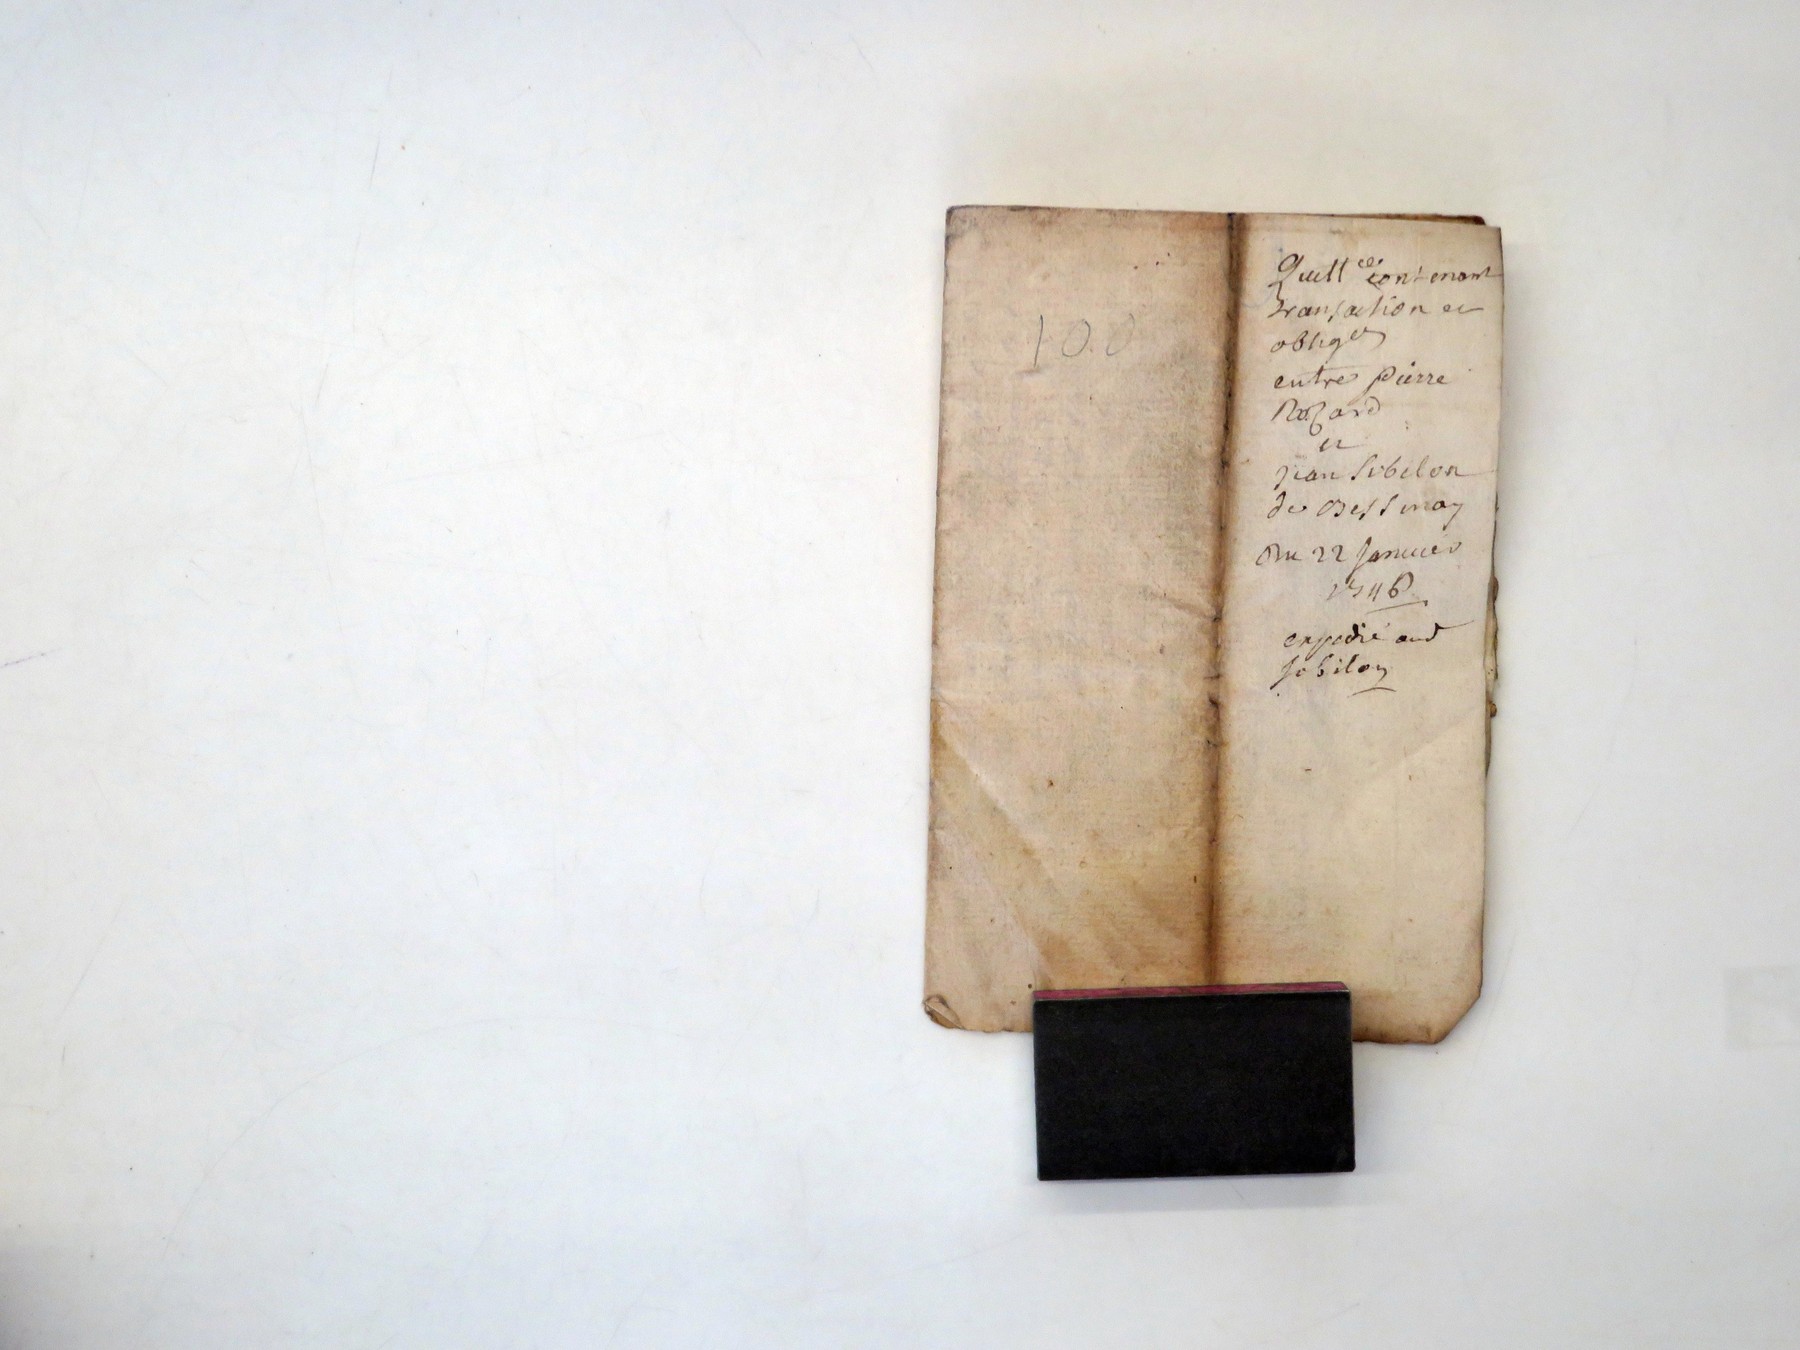 100
Quitt ce contenant
transaction et
oblig on
entre Pierre
Rozard
et
Jean Subilon
de Bessenay
Du 22 Janvier
1746
expedié aud
Subilon